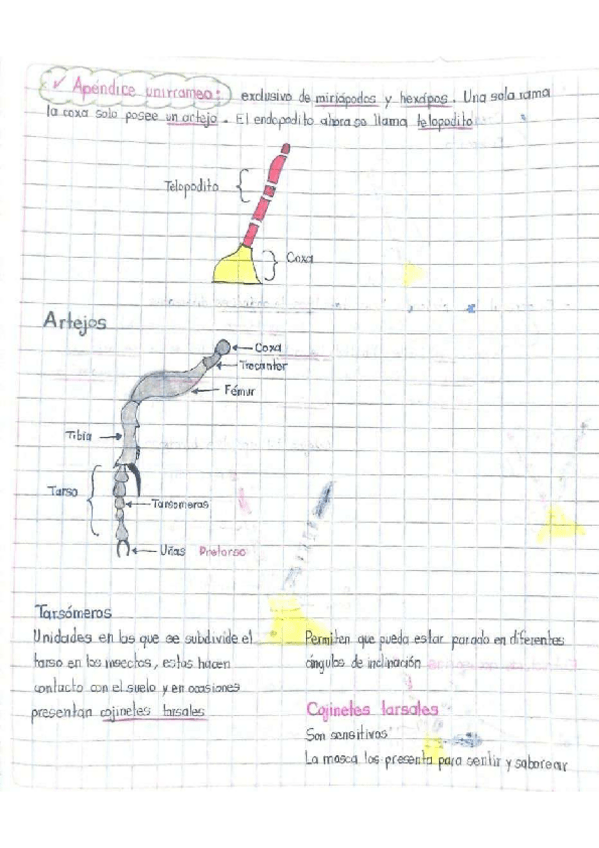 ✓ Apéndice unirrameo: exclusivo de miriápodos y hexápos. Una sola rama
la coxa solo posee un artejo. El endopodito ahora se llama telopodito
Telopodito
Coxa
Artejos
Coxa
Trocanter
Fémur
Tibia
Tarso
Tarsomeros
Uñas Pretarso
Tarsómeros
Unidades en las que se subdivide el
tarso en los insectos, estas hacen
contacto con el suelo y en ocasiones
presentan cojinetes tarsales
Permiten que pueda estar parado en diferentes
ángulos de inclinación
Cojinetes tarsales
Son sensitivos
La mosca los presenta para sentir y saborear